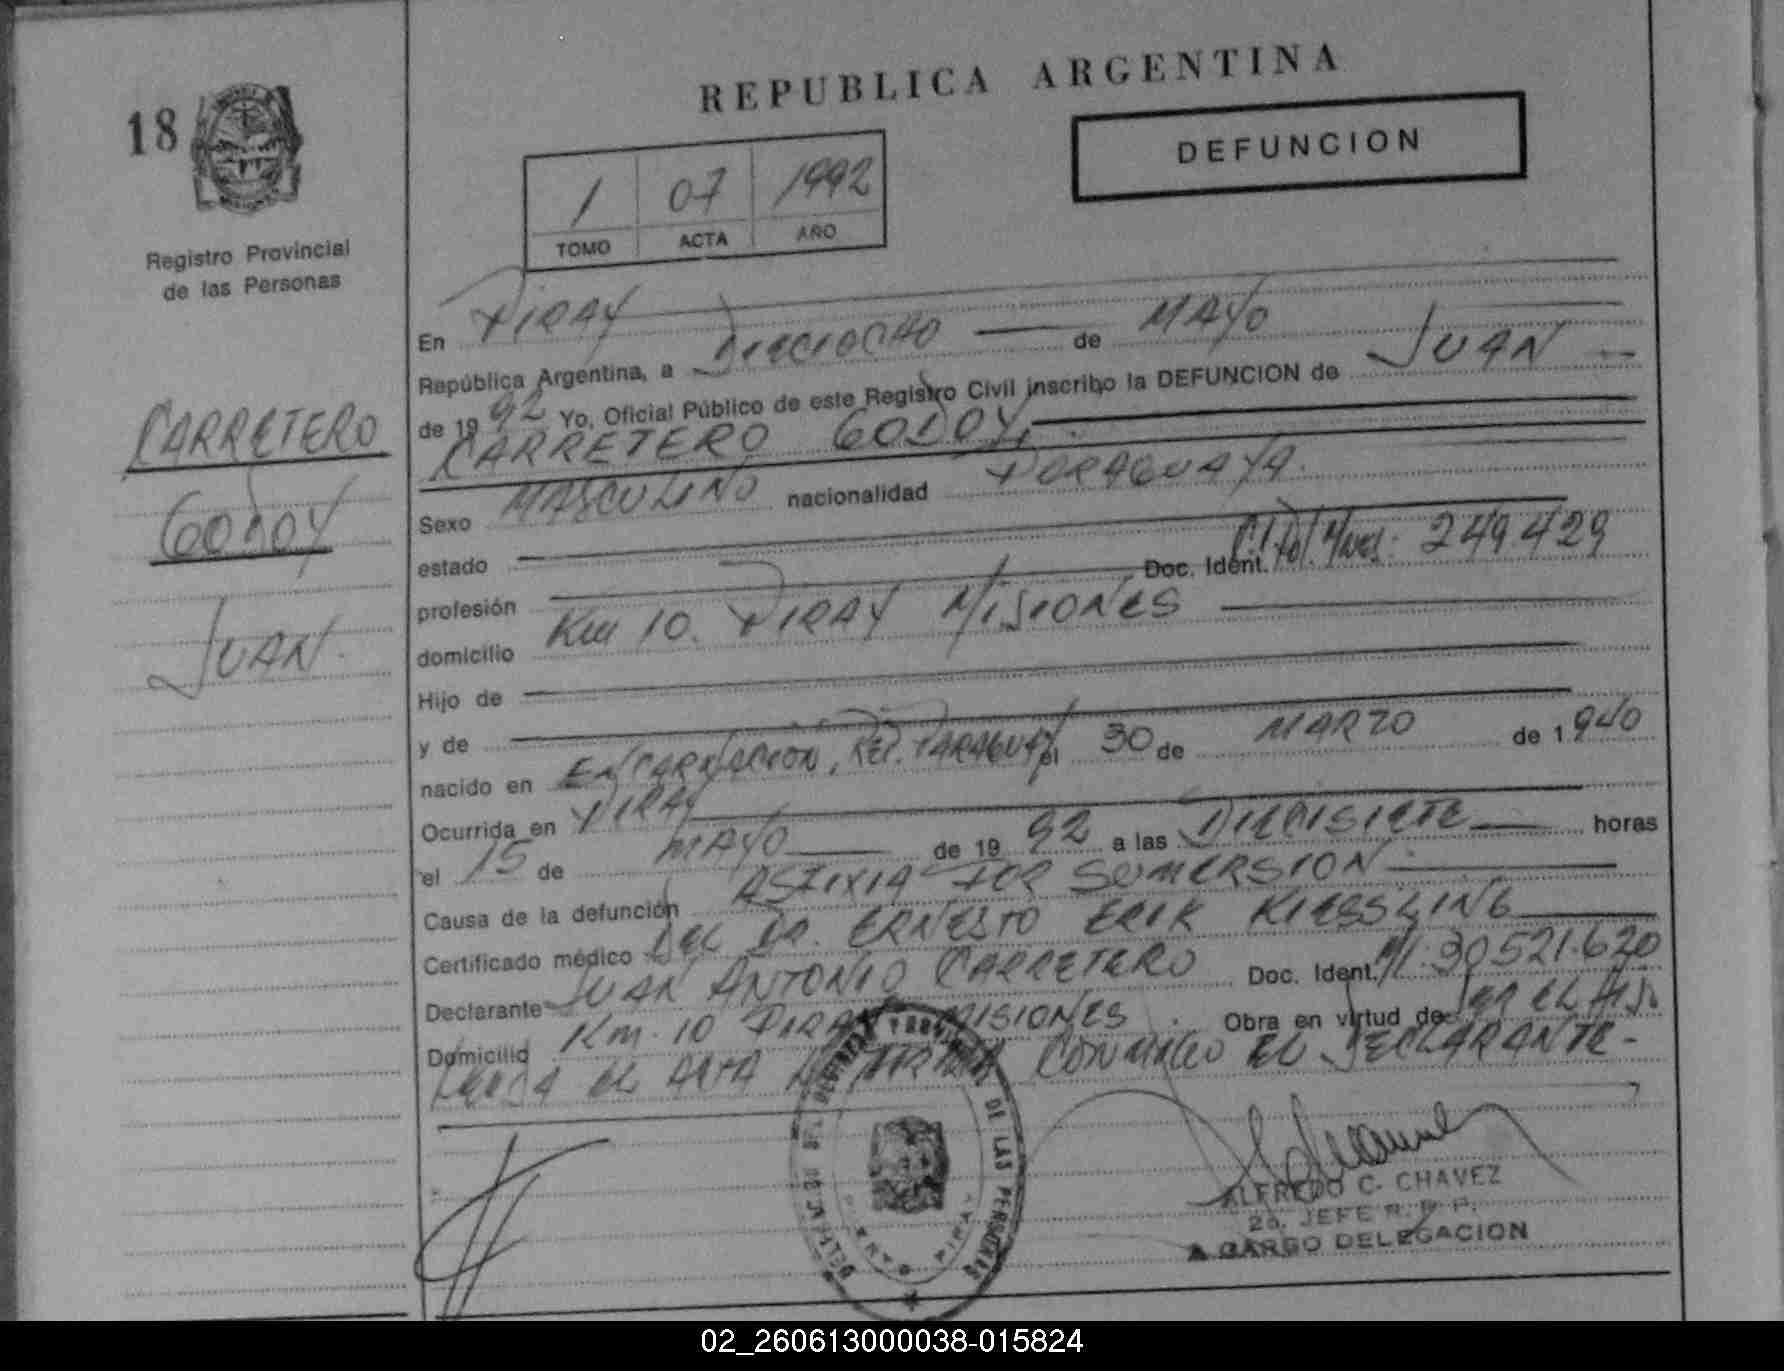 REPUBLICA ARGENTINA
18
DEFUNCION
1 07 1992
TOMO ACTA AÑO
Registro Provincial
de las Personas
CARRETERO
GODOY
JUAN.
En PIRAY
República Argentina, a DIECIOCHO de MAYO
de 1992 Yo, Oficial Público de este Registro Civil inscribo la DEFUNCION de JUAN
CARRETERO GODOY,
Sexo MASCULINO nacionalidad PARAGUAYA.
estado
Doc. Ident. C.I. Pol. Mnes. 249.429
profesión
domicilio Km 10. PIRAY MISIONES
Hijo de
y de
nacido en ENCARNACION, REP. PARAGUAY el 30 de MARZO de 1940
Ocurrida en PIRAY
el 15 de MAYO de 1992 a las DIECISIETE horas
Causa de la defunción ASFIXIA POR SUMERSION
Certificado médico DEL DR. ERNESTO ERIK KIESSLING
Declarante JUAN ANTONIO CARRETERO Doc. Ident. M.I. 30.521.620
Domicilio Km. 10 PIRAY MISIONES. Obra en virtud de SER EL HIJO
LEIDA EL ACTA LA FIRMA CONMIGO EL DECLARANTE-
DE LAS PERSONAS
PUERTO PIRAY
ALFREDO C. CHAVEZ
2o. JEFE R. P. P.
A CARGO DELEGACION
02_260613000038-015824